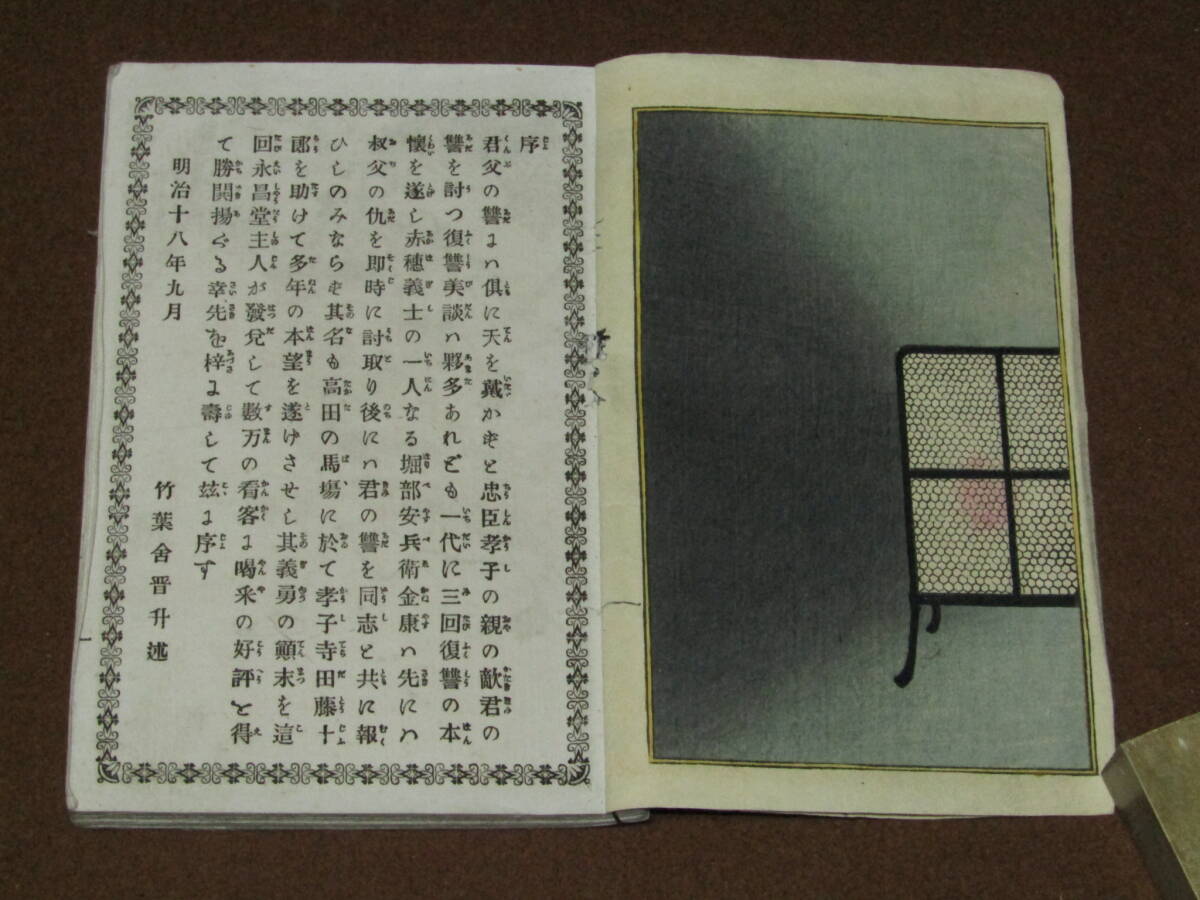 序
君父の讐にハ俱に天を戴かずと忠臣孝子の親の敵君の
讐を討つ復讐美談ハ夥多あれども一代に三回復讐の本
懐を遂し赤穂義士の一人なる堀部安兵衛金康ハ先にハ
叔父の仇を即時に討取り後にハ君の讐を同志と共に報
ひしのみならず其名も高田の馬場に於て孝子寺田藤十
郎を助けて多年の本望を遂げさせし其義勇の顚末を這
回永昌堂主人が發兌して數万の看客に喝采の好評を得
て勝鬨揚ぐる幸先を梓に壽して玆に序す
明治十八年九月
竹葉舎晋升述